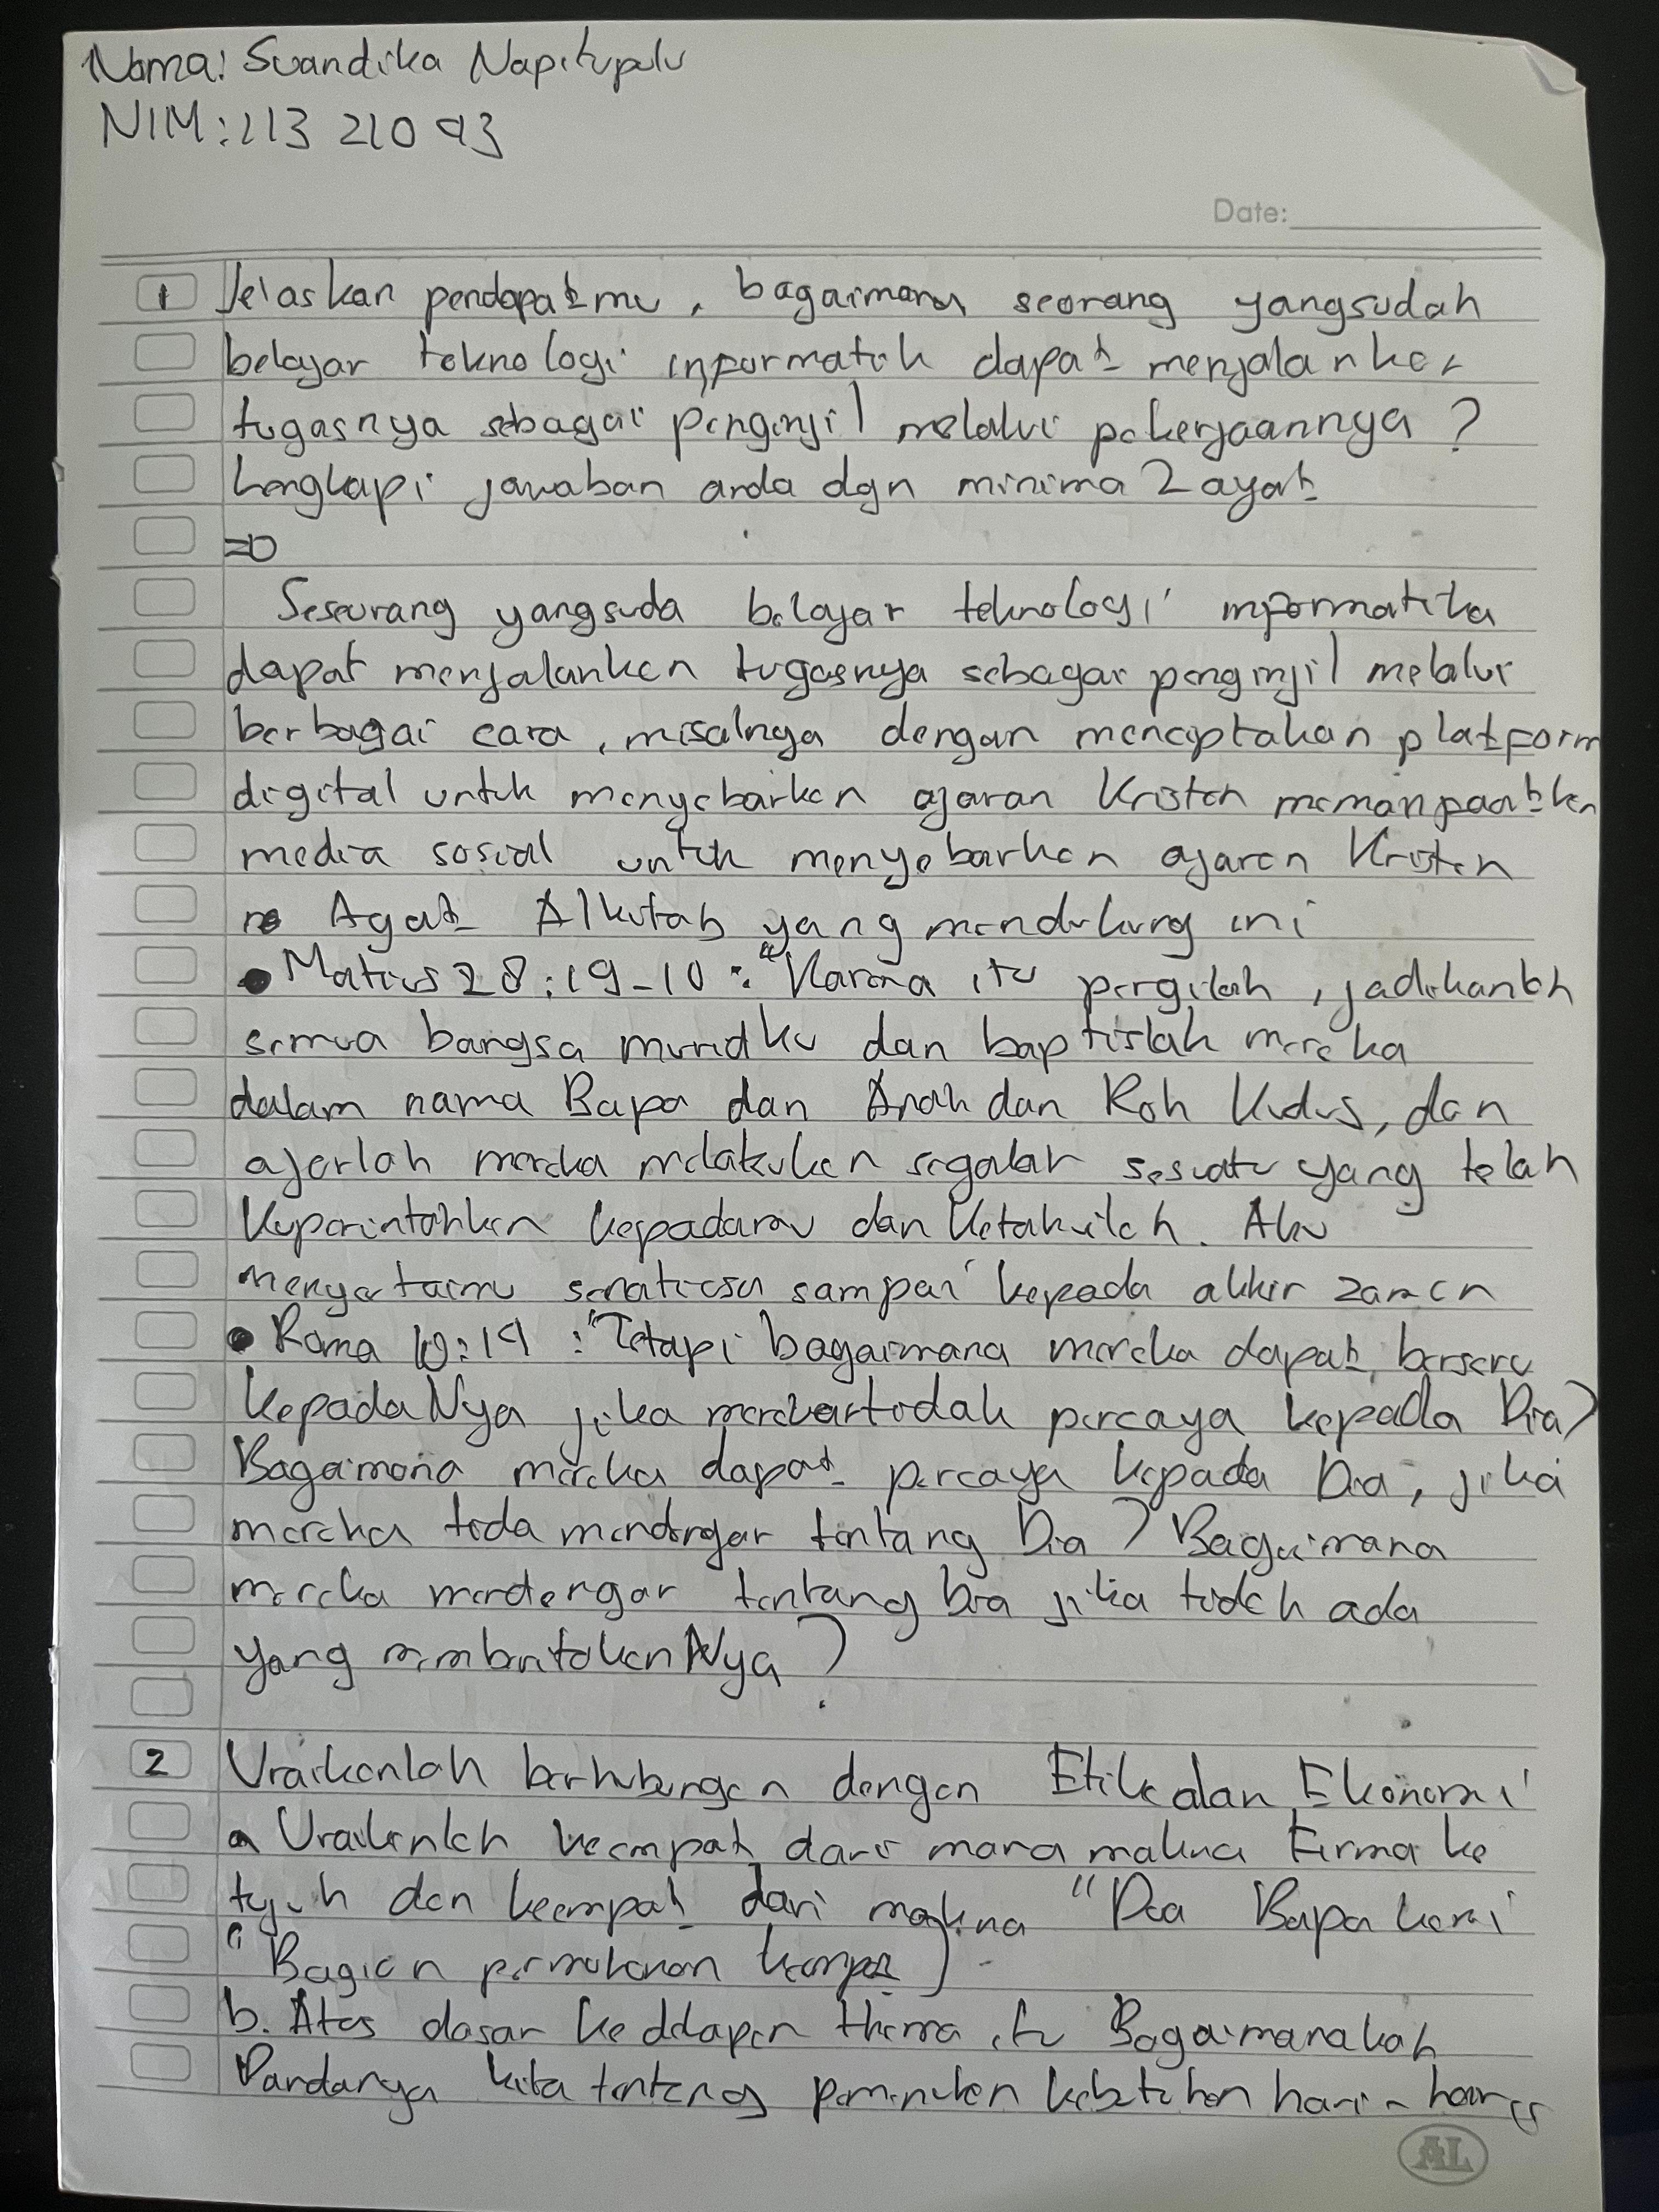 Nama: Suandika Napitupulu
NIM: 113 210 93
Date:
1 Jelaskan pendapatmu, bagaimana seorang yangsudah
belajar teknologi informatik dapat menjalankan
tugasnya sebagai penginjil melalui pekerjaannya?
Lengkapi jawaban anda dgn minima 2 ayat
=D
Seseorang yangsuda belajar teknologi informatika
dapat menjalankan tugasnya sebagai penginjil melalui
berbagai cara, misalnya dengan menciptakan platform
digital untuk menyebarkan ajaran Kristen memanfaatkan
media sosial untuk menyebarkan ajaran Kristen
Ayat Alkitab yang mendukung ini
• Matius 28:19-10: "Karena itu pergilah, jadikanlah
semua bangsa muridku dan baptislah mereka
dalam nama Bapa dan Anak dan Roh Kudus, dan
ajarlah mereka melakukan segalah sesuatu yang telah
Kuperintahkan kepadamu dan Ketahuilah. Aku
menyertaimu senatiasa sampai kepada akhir zaman
• Roma 10:14 : "Tetapi bagaimana mereka dapat berseru
KepadaNya jika mereka tidak percaya kepada Dia?
Bagaimana mereka dapat percaya kepada Dia, jika
mereka tida mendengar tentang Dia? Bagaimana
mereka mendengar tentang Dia jika tidak ada
yang memberitakanNya?
2 Uraikanlah berhubungan dengan Etika dan Ekonomi
a Uraikanlah keempat dari mana makna Firma ke
tujuh dan keempat dari makna "Doa Bapa kami
" Bagian permohonan keempat)
b. Atas dasar thema itu Bagaimanakah
Pandanga kita tentang pemenuhan kebutuhan hari-hari
AL